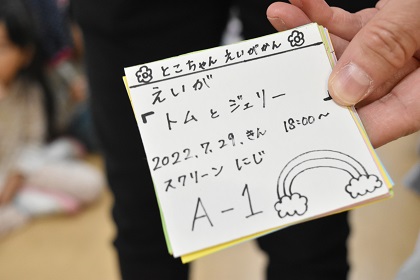 とこちゃん えいがかん
えいが
「トムとジェリー
2022.7.29.きん 18:00~
スクリーン にじ
A-1